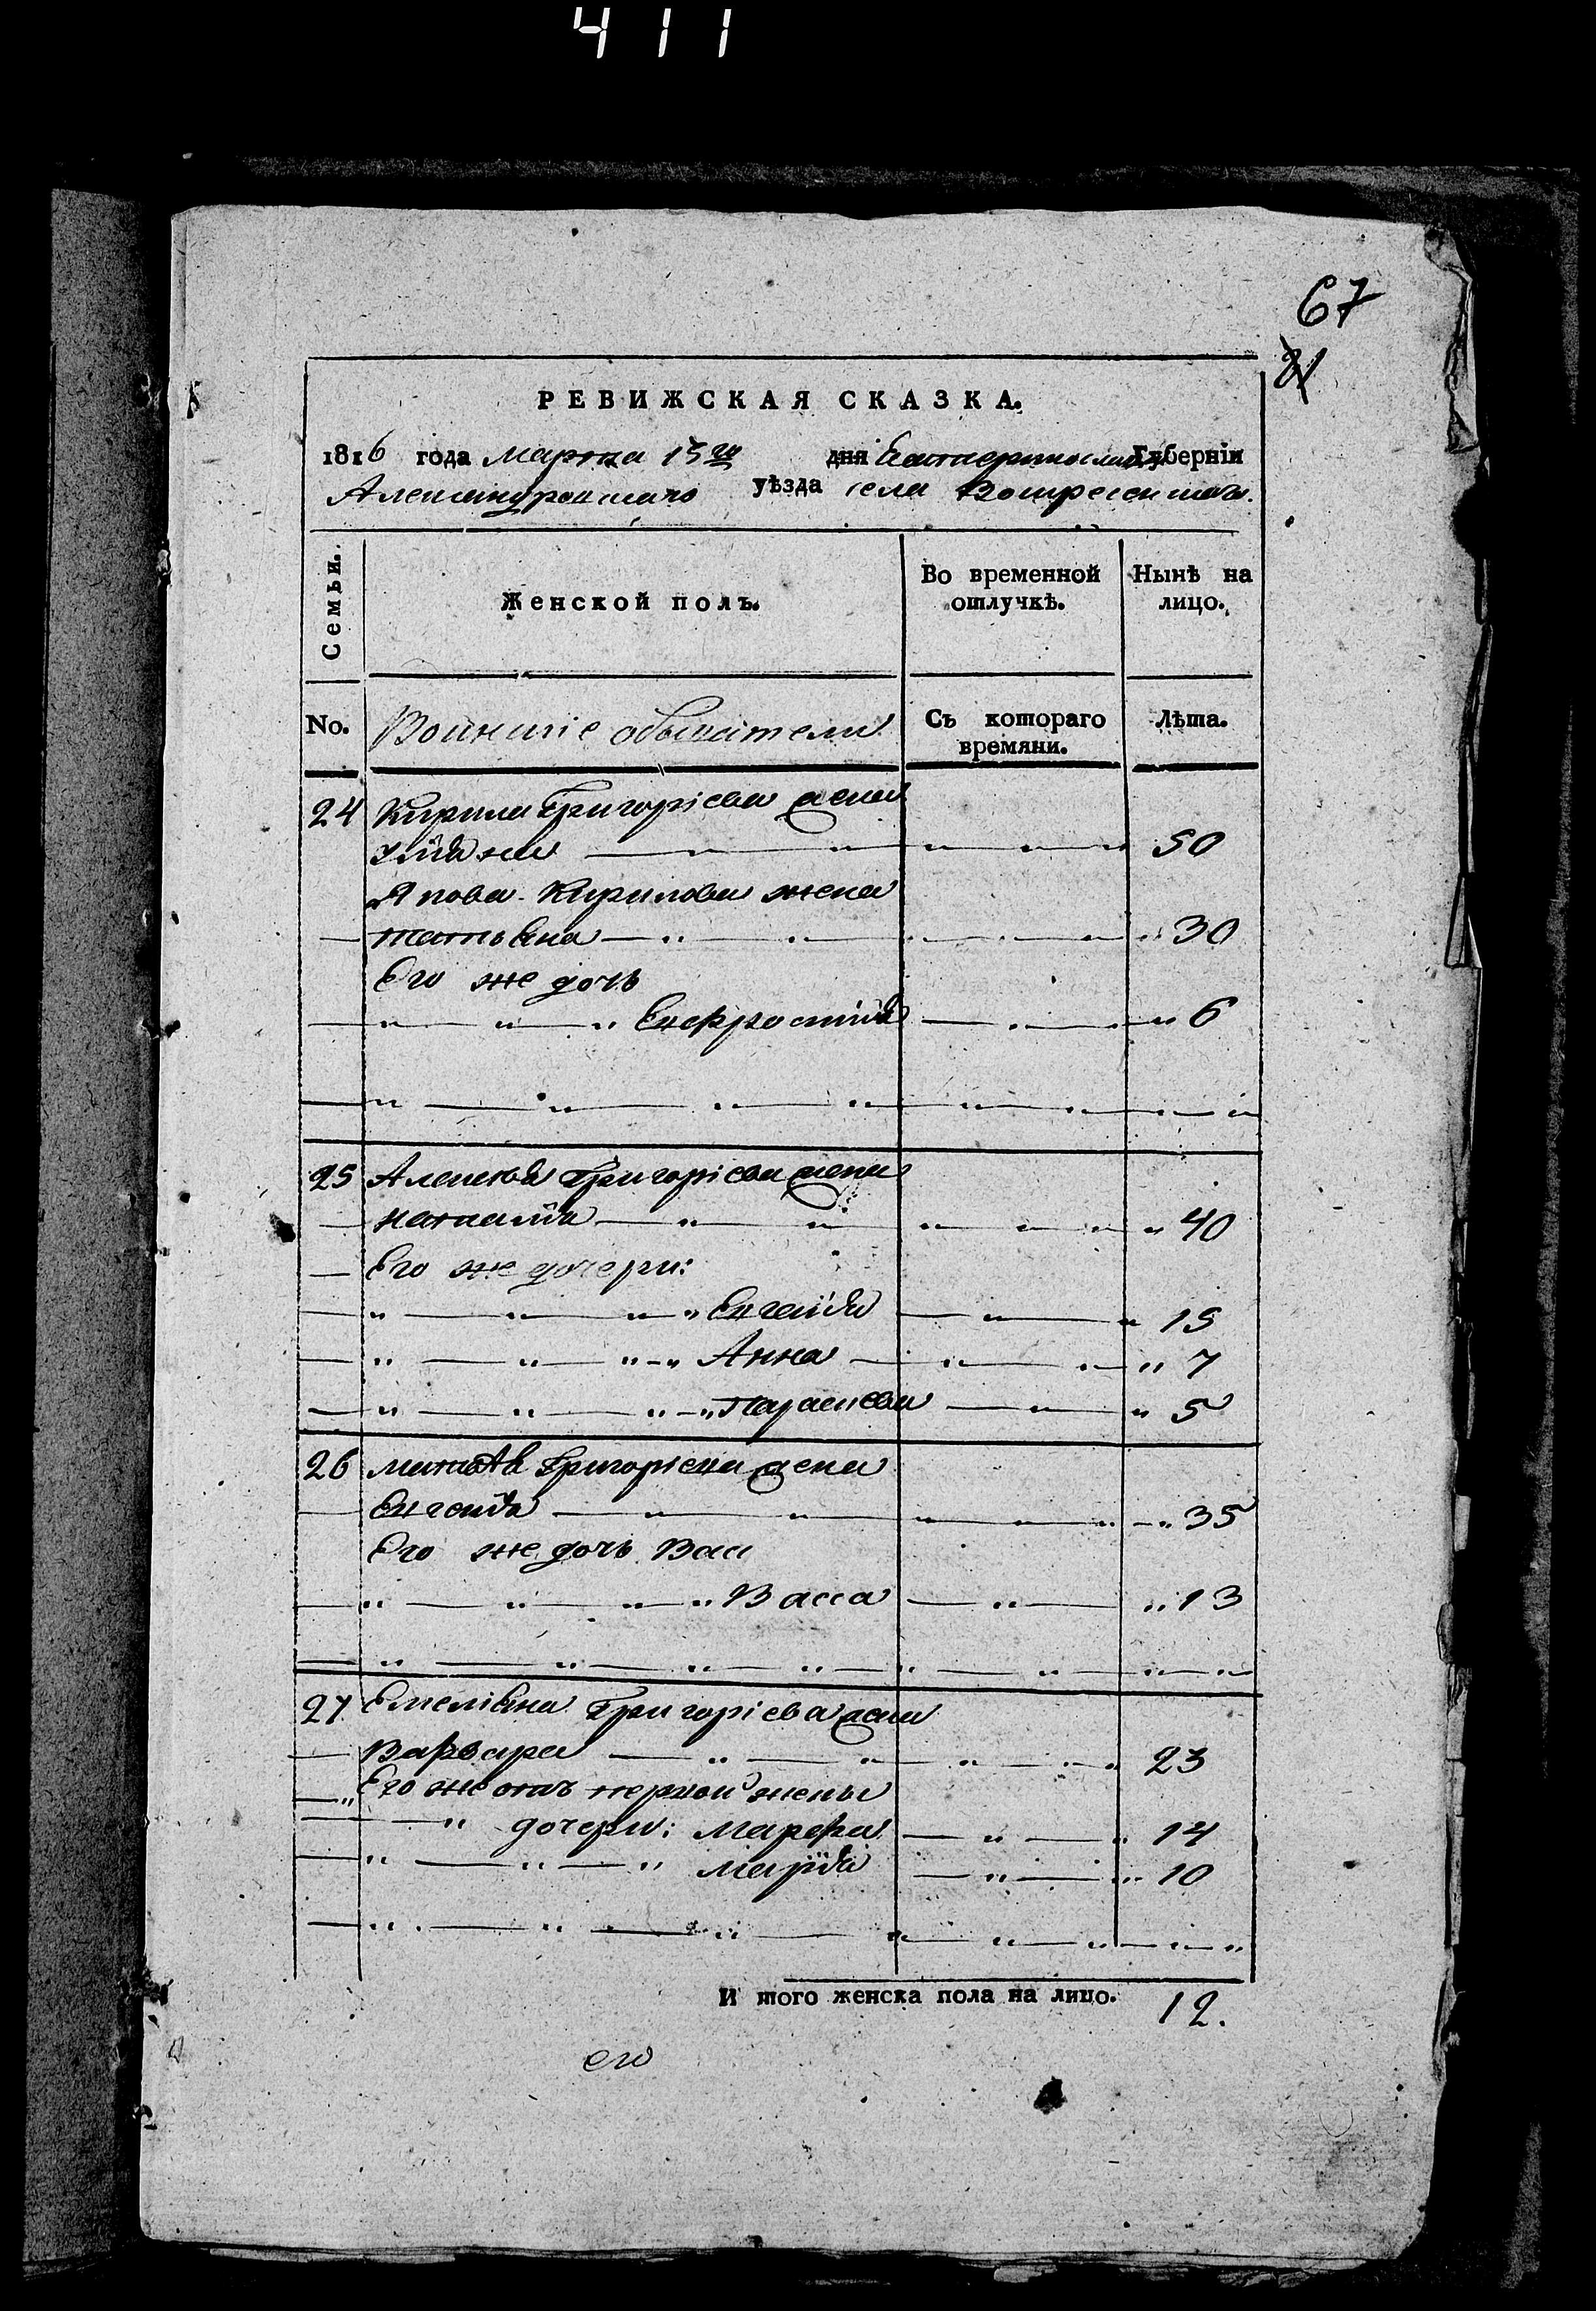 411
67
21
РЕВИЖСКАЯ СКАЗКА.
1816 года марта 15го дня Екатеринославской Губерніи
Александровскаго уѣзда села Воскресенскаго.
Семьи.
Женской полъ.
Во временной отлучкѣ.
Нынѣ на лицо.
No.
Воинскіе обыватели
Съ котораго времяни.
Лѣта.
24 Кирила Григоріева жена
50
Якова Кирилова жена
татьяна 30
Его же дочь
Евфросинія 6
25 Алексѣя Григоріева жена
наталія 40
Его же дочери:
Евгенія 15
Анна 7
Парасковія 5
26 матвѣя Григоріева жена
Евгенія 35
Его же дочь Вас
Васса 13
27 Емеліяна Григоріева жена
Варвара 23
Его же отъ первой жены
дочери: марфа 14
марія 10
И того женска пола на лицо. 12.
его